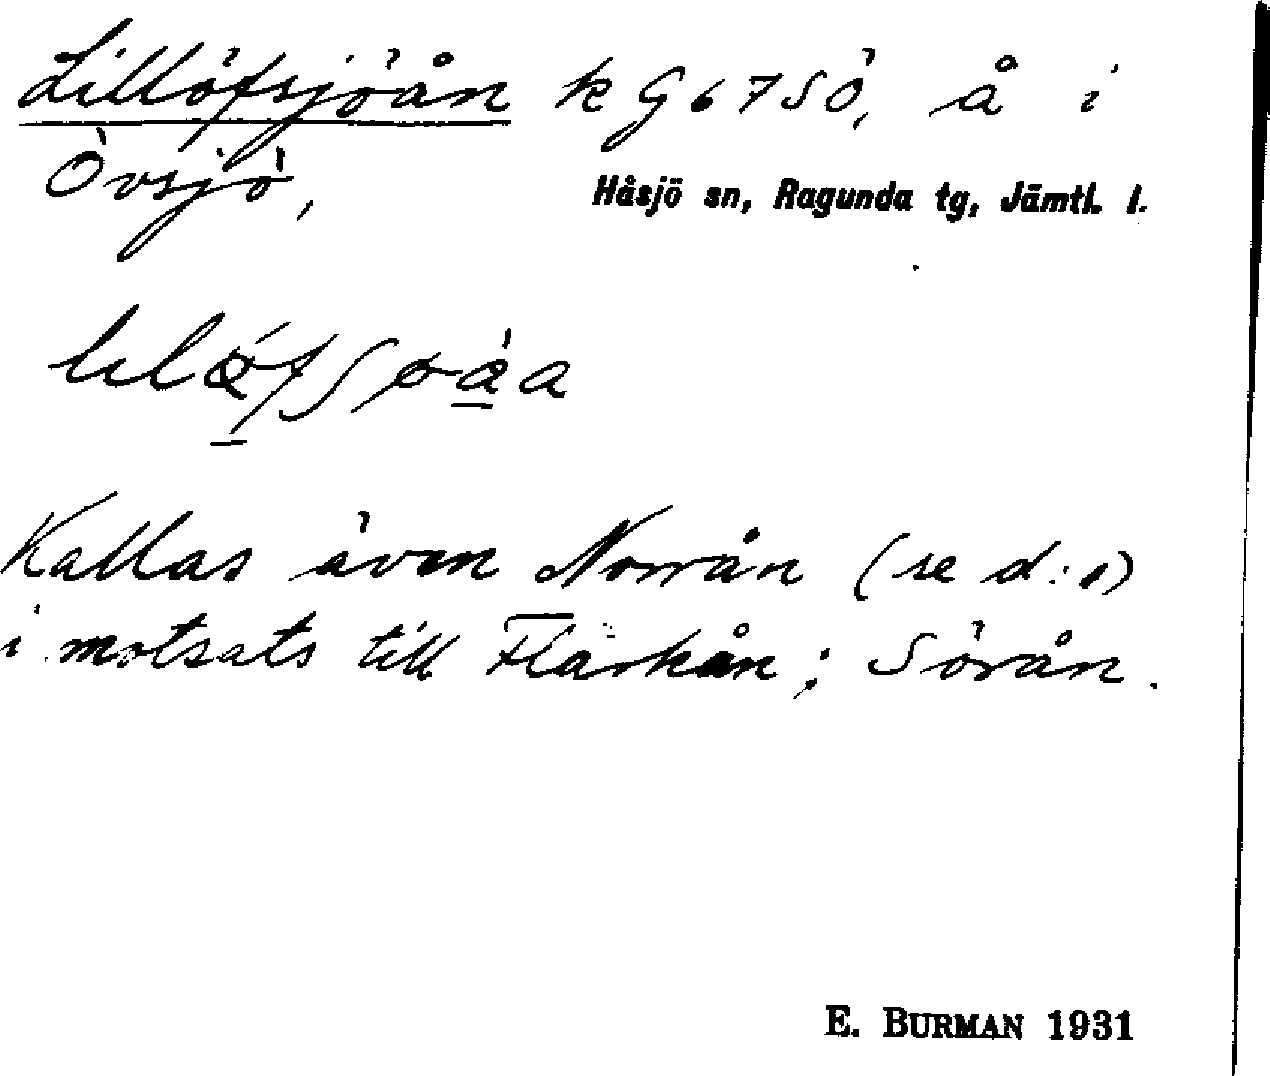 Lillöfsjöån k G67SÖ, å i
Övsjö, Håsjö sn, Ragunda tg, Jämtl. l.
Kallas även Norrån (se d:o)
i motsats till Flärkån; Sörån.
E. BURMAN 1931